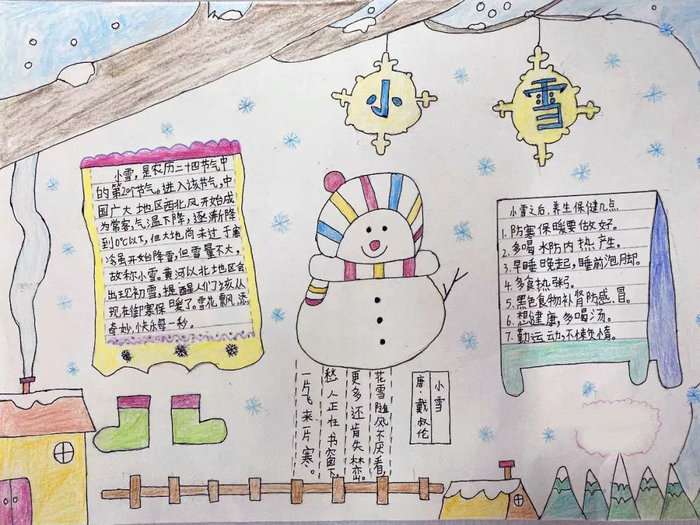 小雪
小雪，是农历二十四节气中
的第20个节气。进入该节气，中
国广大地区西北风开始成
为常客，气温下降，逐渐降
到0℃以下，但大地尚未过于寒
冷虽开始降雪，但雪量不大，
故称小雪。黄河以北地区会
出现初雪，提醒人们该从
现在御寒保暖了。雪花飘添
奇妙，快乐每一秒。
小雪之后，养生保健几点
1. 防寒保暖要做好。
2. 多喝水防内热产生。
3. 早睡晚起，睡前泡脚。
4. 多食热粥。
5. 黑色食物补肾防感冒。
6. 想健康，多喝汤。
7. 勤运动，不懊惰。
小雪
唐 戴叔伦
花雪随风不厌看，
更多还肯失林
愁人正在书窗下，
一片飞来片寒。